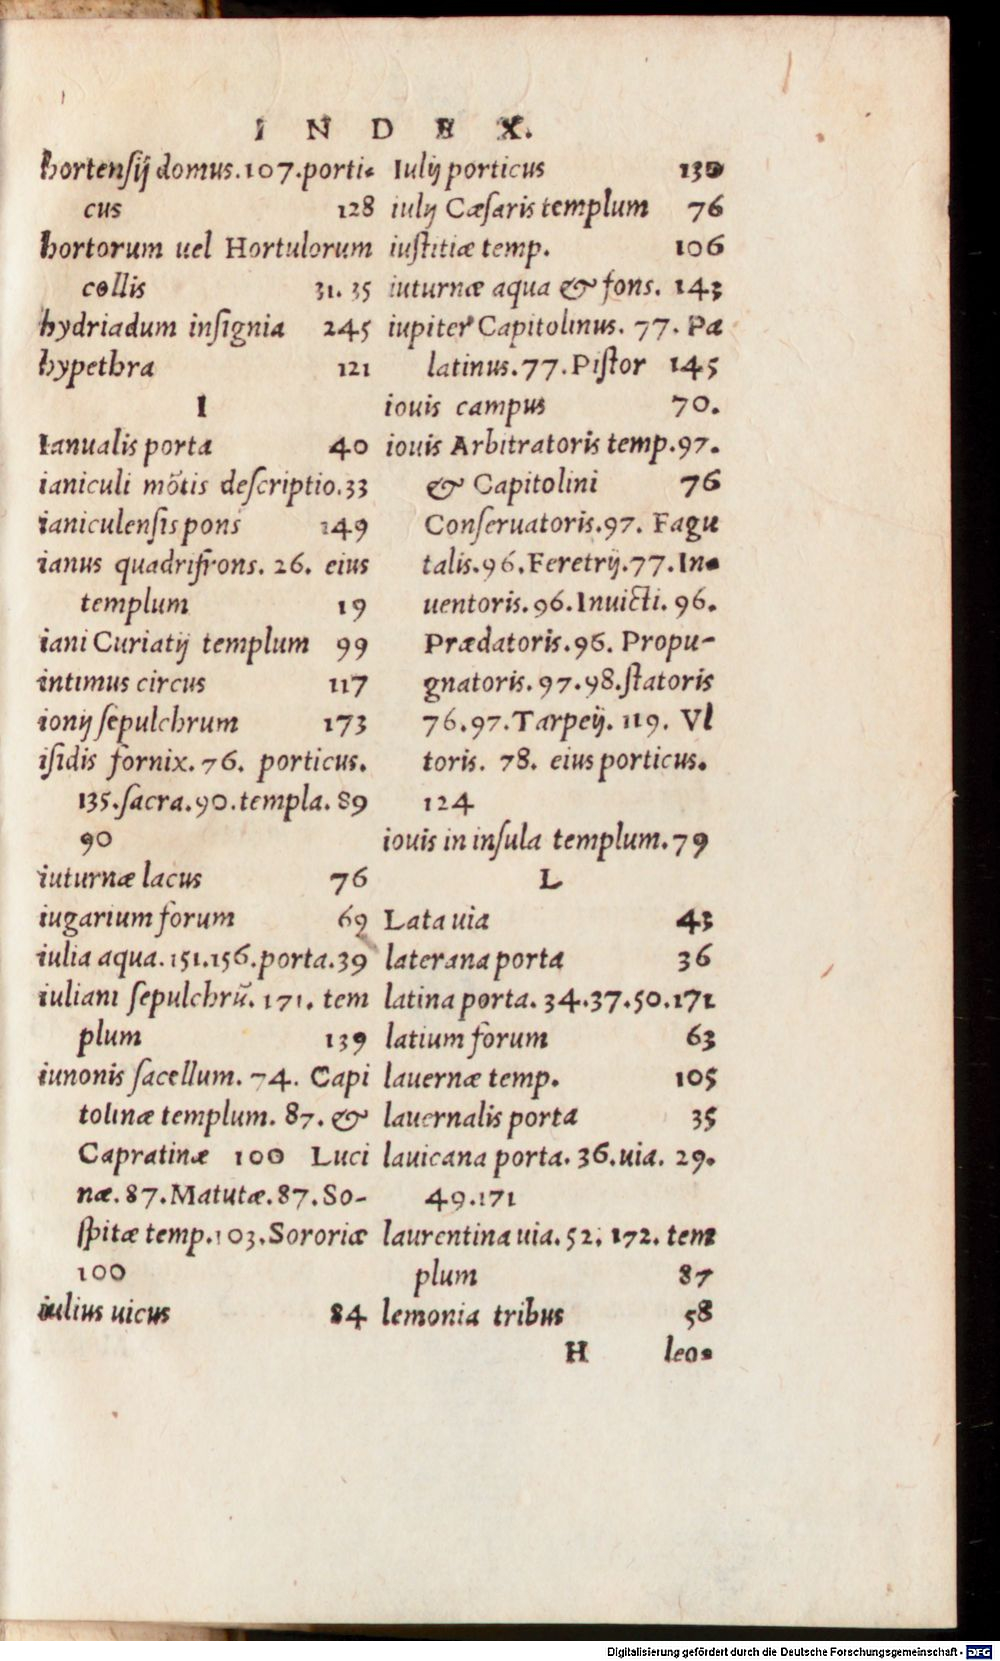 INDEX.
hortensij domus.107.porti-
cus 128
hortorum uel Hortulorum
collis 31.35
hydriadum insignia 245
hypethra 121
I
Ianualis porta 40
ianiculi mõtis descriptio.33
ianiculensis pons 149
ianus quadrifrons. 26. eius
templum 19
iani Curiatij templum 99
intimus circus 117
ionij sepulchrum 173
isidis fornix.76. porticus.
135.sacra.90.templa.89
90
iuturnæ lacus 76
iugarium forum 69
iulia aqua.151.156.porta.39
iuliani sepulchrũ. 171. tem
plum 139
iunonis sacellum. 74. Capi
tolinæ templum. 87. &
Capratinæ 100 Luci
næ.87.Matutæ.87.So-
spitæ temp.103.Sororiæ
100
iulius uicus 84
Iulij porticus 130
iulij Cæsaris templum 76
iustitiæ temp. 106
iuturnæ aqua & fons. 143
iupiter Capitolinus. 77. Pa
latinus.77.Pistor 145
iouis campus 70.
iouis Arbitratoris temp.97.
& Capitolini 76
Conseruatoris.97. Fagu
talis.96.Feretrij.77.In-
uentoris.96.Inuicti. 96.
Prædatoris.96. Propu-
gnatoris.97.98.statoris
76.97.Tarpeij. 119. Vl
toris. 78. eius porticus.
124
iouis in insula templum.79
L
Lata uia 43
laterana porta 36
latina porta. 34.37.50.171
latium forum 63
lauernæ temp. 105
lauernalis porta 35
lauicana porta. 36.uia. 29.
49.171
laurentina uia.52. 172. tem
plum 87
lemonia tribus 58
H leo-
Digitalisierung gefördert durch die Deutsche Forschungsgemeinschaft - DFG